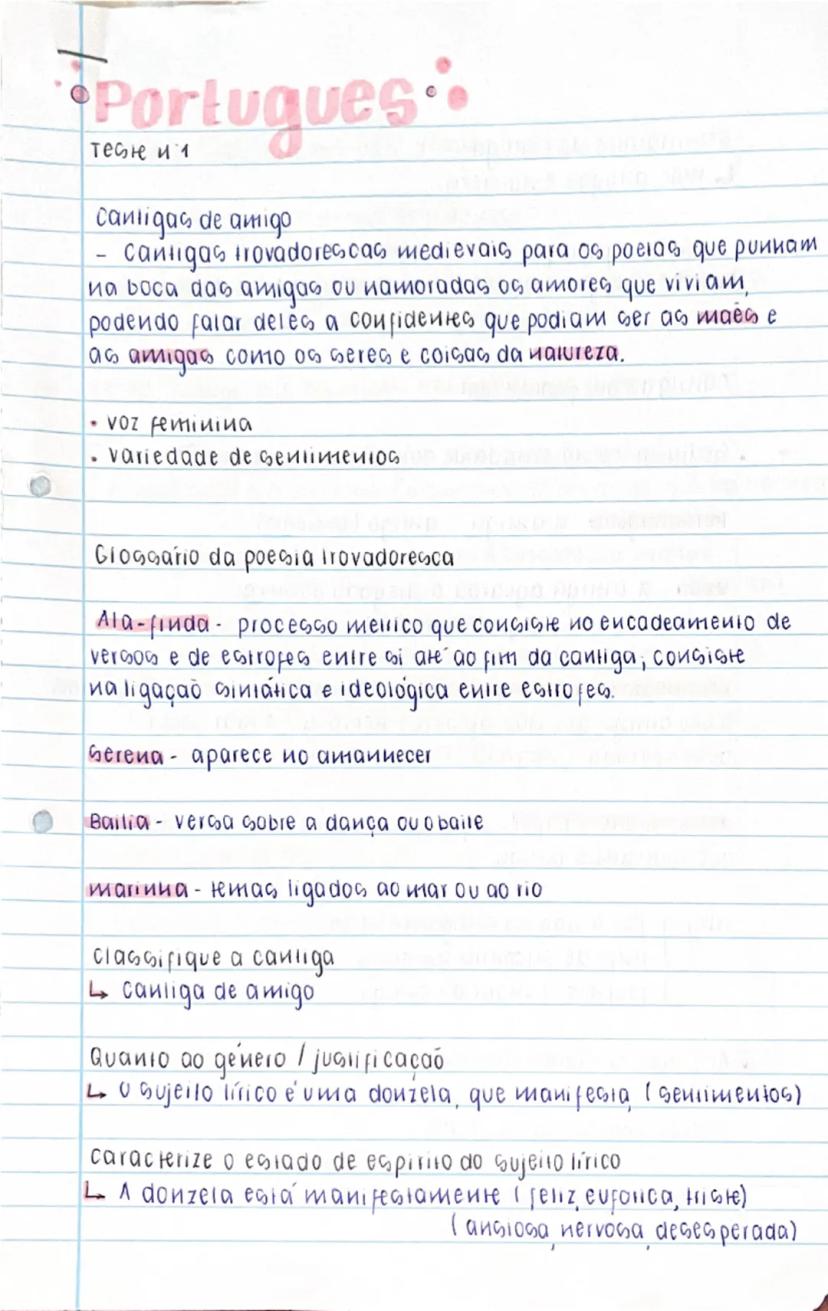 Portugues
Teste nº1
Cantigas de amigo
- Cantigas trovadorescas medievais para os poetas que punham
na boca das amigas ou namoradas os amores que viviam,
podendo falar deles a confidentes que podiam ser as maẽs e
as amigas como os seres e coisas da natureza.
• voz feminina
• variedade de sentimentos
Glossário da poesia trovadoresca
Ata-finda - processo métrico que consiste no encadeamento de
versos e de estrofes entre si até ao fim da cantiga; consiste
na ligação sintática e ideológica entre estrofes.
Serena - aparece no amanhecer
Bailia - versa sobre a dança ou o baile
marinha - temas ligados ao mar ou ao rio
Classifique a cantiga
↳ Cantiga de amigo
Quanto ao género / justificação
↳ O sujeito lírico é uma donzela, que manifesta, (sentimentos)
Caracterize o estado de espirito do sujeito lírico
↳ A donzela está manifestamente (feliz, euforica, triste)
(ansiosa, nervosa, desesperada)